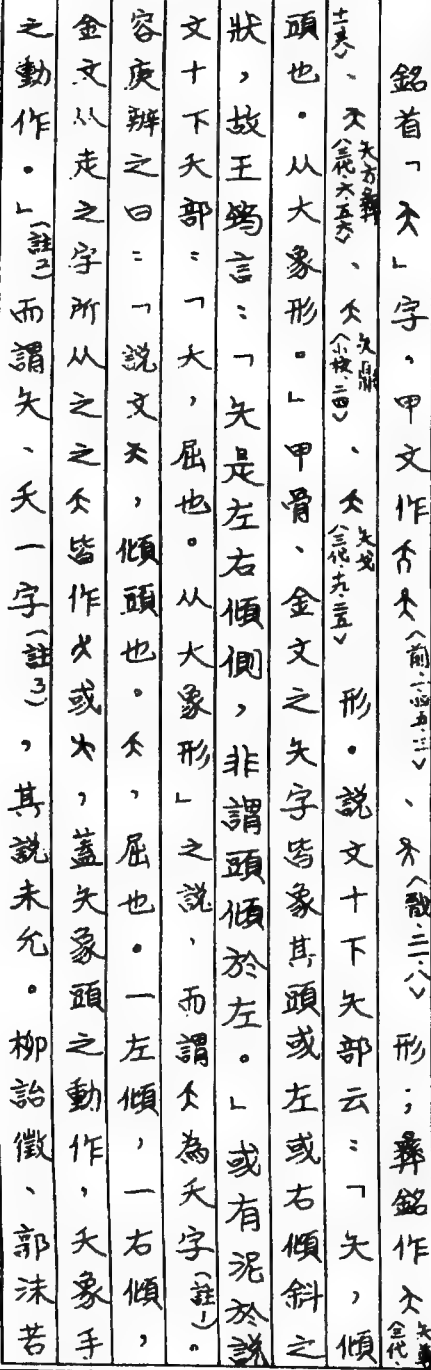 銘首「夨」字,甲文作夨夨〈前.一.四五.三〉、夨〈戩.三一.八〉形;彝銘作夨夨尊〈三代
十一.〉、夨夨方彝〈三代.六.五六〉、夨夨鼎〈小校.二四〉、夨夨戈〈三代.十九.二五〉形。說文十下夨部云:「夨,傾
頭也。从大象形。」甲骨、金文之夨字皆象其頭或左或右傾斜之
狀,故王筠言:「夨是左右傾側,非謂頭傾於左。」或有泥於說
文十下夭部:「夭,屈也。从大象形」之說,而謂夨為夭字(註1)。
容庚辨之曰:「說文夨,傾頭也。夭,屈也。一左傾,一右傾,
金文从走之字所从之之夭皆作或,蓋夨象頭之動作,夭象手
之動作。」(註2)而謂夨、夭一字(註3),其說未允。柳詒徵、郭沫若